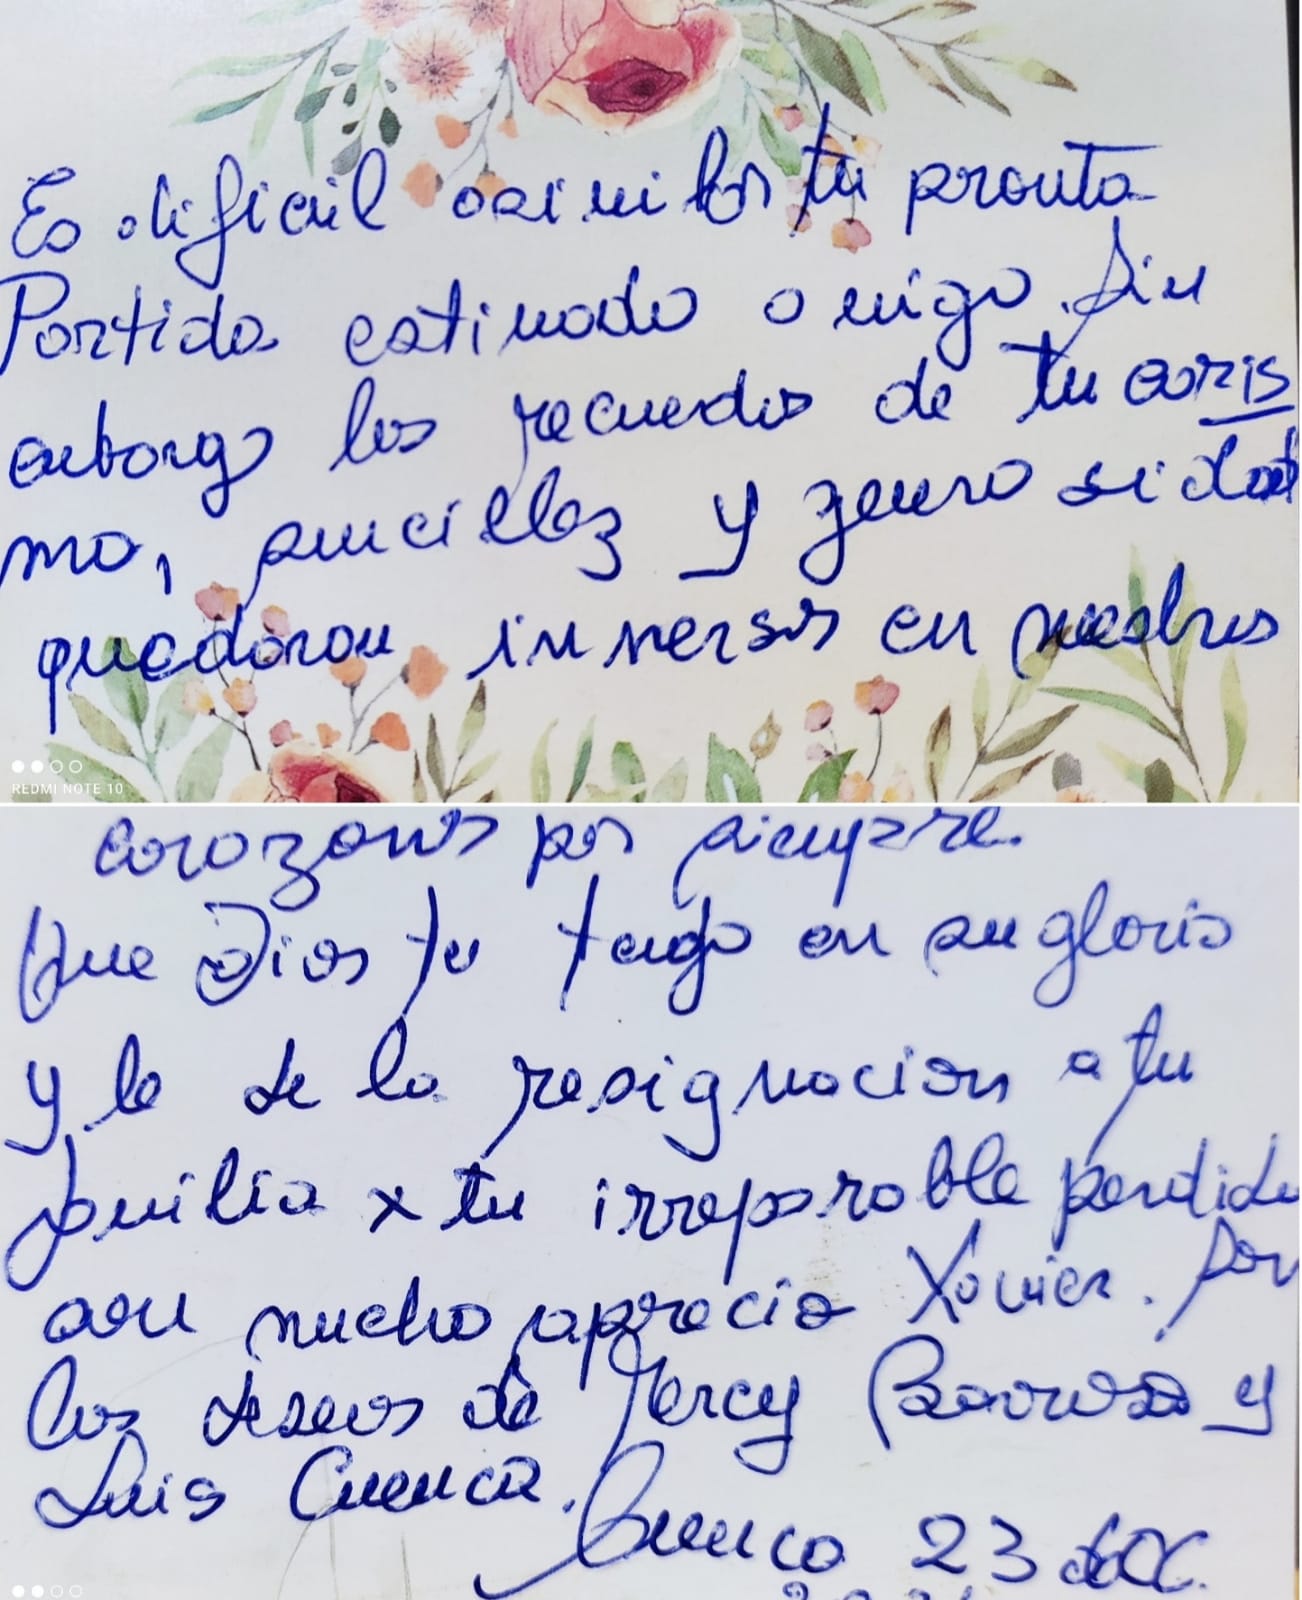 Es dificil asimilar tu pronta
Partida estimado amigo. Sin
enborgo los recuerdos de tu caris
mo, sencillez y generosidad
quedaron inmersos en nuestros
REDMI NOTE 10
corazones por siempre.
Que Dios te tenga en su gloria
y le de la resignacion a tu
familia x tu irreparable perdida
con mucho aprecio Xavier. Son
los deseos de Mercy Barrosa y
Luis Cuenca.
Cuenca 23 dic.